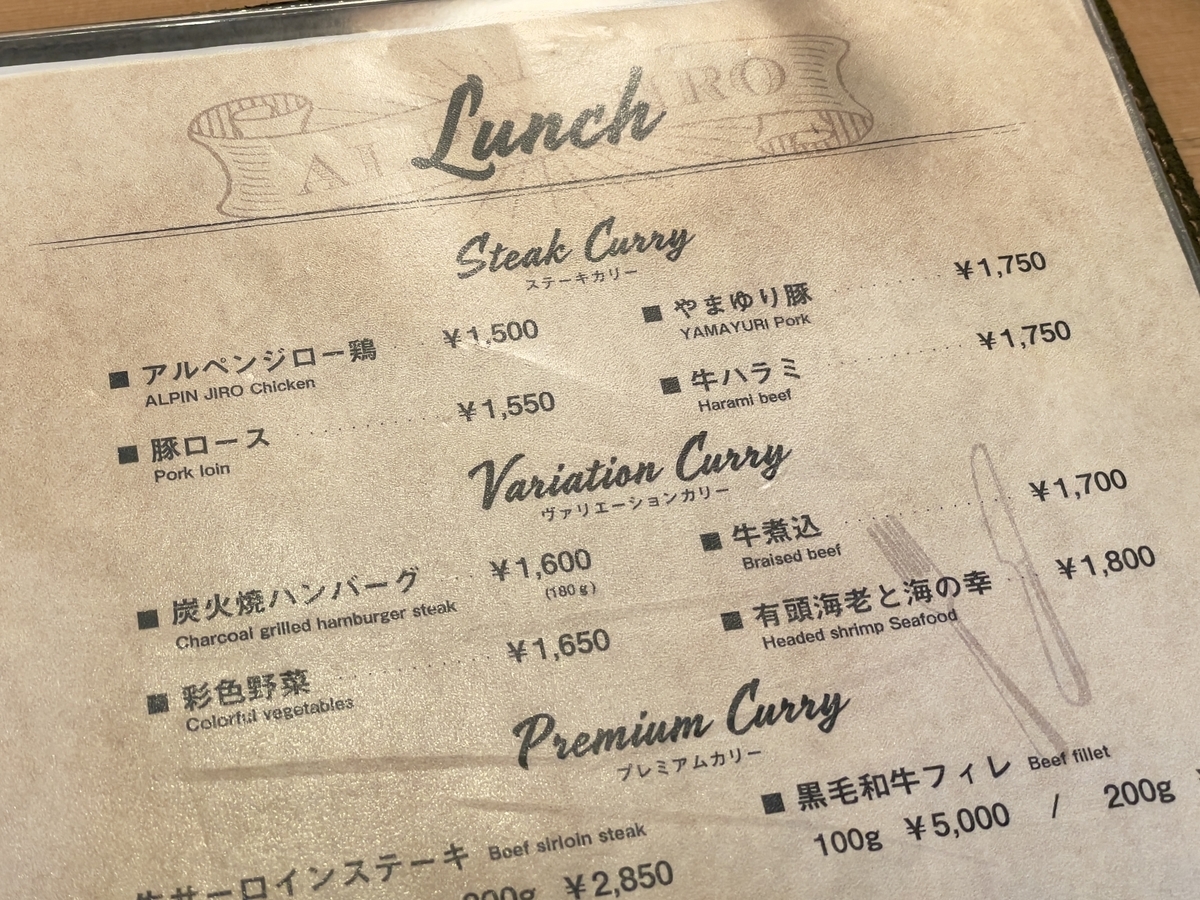 Lunch
Steak Curry
ステーキカリー
■ アルペンジロー鶏 ¥1,500
ALPIN JIRO Chicken
■ 豚ロース ¥1,550
Pork loin
■ やまゆり豚 ¥1,750
YAMAYURI Pork
■ 牛ハラミ ¥1,750
Harami beef
Variation Curry
ヴァリエーションカリー
■ 炭火焼ハンバーグ ¥1,600
Charcoal grilled hamburger steak (180g)
■ 彩色野菜 ¥1,650
Colorful vegetables
■ 牛煮込 ¥1,700
Braised beef
■ 有頭海老と海の幸 ¥1,800
Headed shrimp Seafood
Premium Curry
プレミアムカリー
牛サーロインステーキ Beef sirloin steak
200g ¥2,850
■ 黒毛和牛フィレ Beef fillet
100g ¥5,000 / 200g